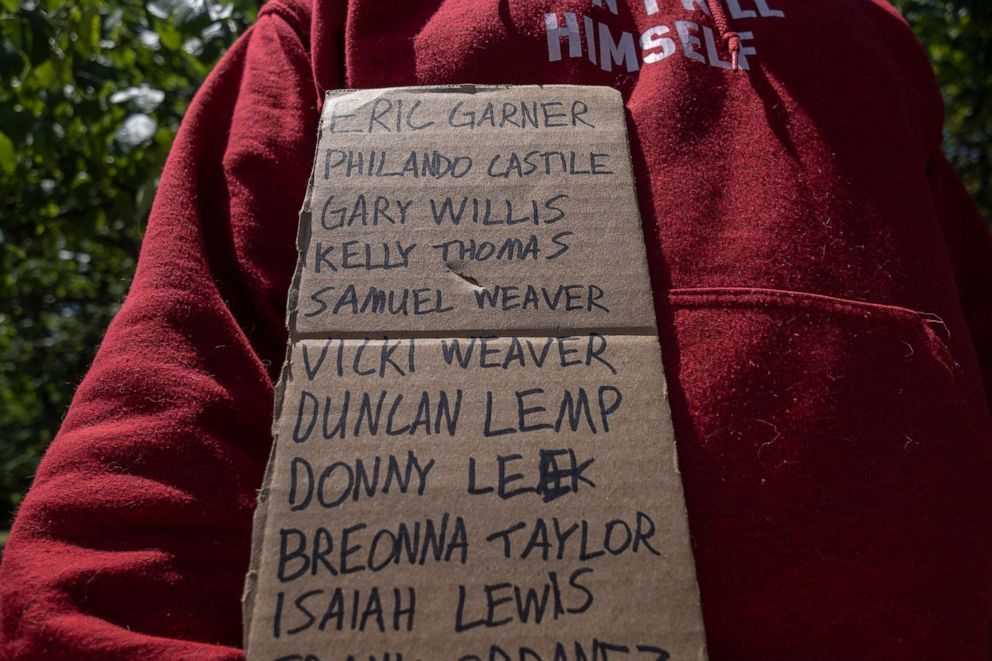 HIMSELF
ERIC GARNER
PHILANDO CASTILE
GARY WILLIS
KELLY THOMAS
SAMUEL WEAVER
VICKI WEAVER
DUNCAN LEMP
DONNY LEEK
BREONNA TAYLOR
ISAIAH LEWIS